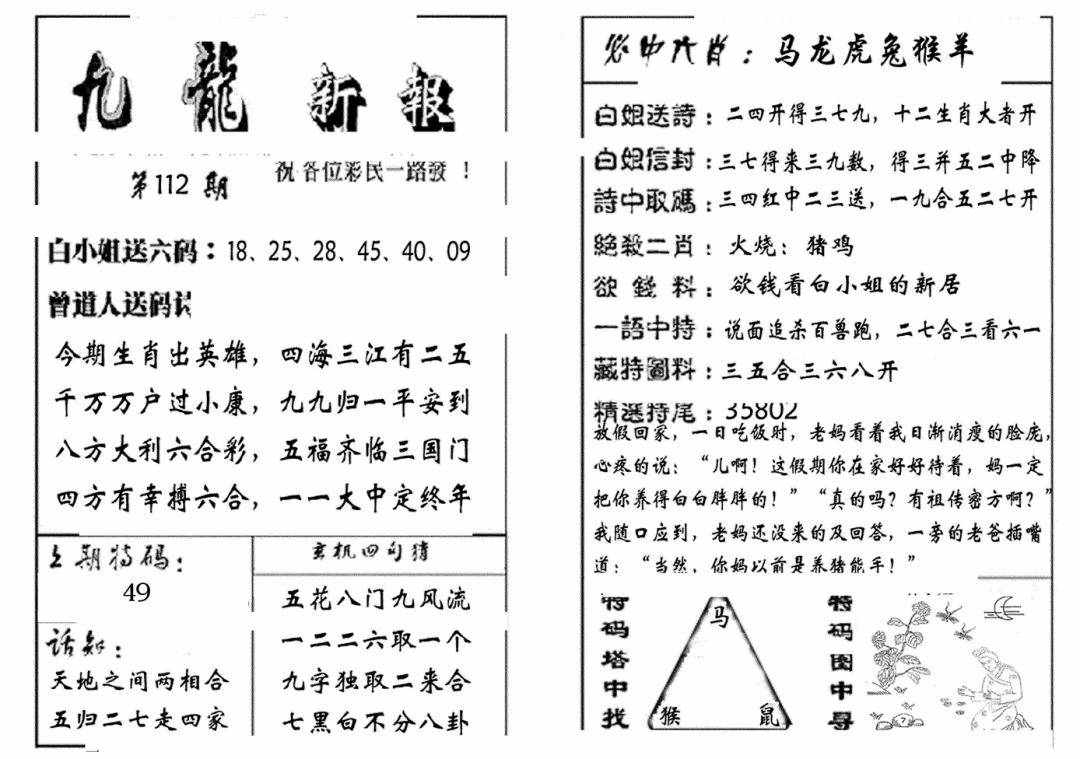 九龍新報
第112期
祝各位彩民一路發！
白小姐送六码：18、25、28、45、40、09
曾道人送码诗
今期生肖出英雄，四海三江有二五
千万万户过小康，九九归一平安到
八方大利六合彩，五福齐临三国门
四方有幸搏六合，一一大中定终年
上期特码：
49
话知：
天地之间两相合
五归二七走四家
玄机四句猜
五花八门九风流
一二二六取一个
九字独取二来合
七黑白不分八卦
必中六肖：马龙虎兔猴羊
白姐送詩：二四开得三七九，十二生肖大者开
白姐信封：三七得来三九数，得三并五二中降
詩中取碼：三四红中二三送，一九合五二七开
絕殺二肖：火烧：猪鸡
欲錢料：欲钱看白小姐的新居
一語中特：说面追杀百兽跑，二七合三看六一
藏特圖料：三五合三六八开
精選特尾：35802
放假回家，一日吃饭时，老妈看着我日渐消瘦的脸庞，
心疼的说：“儿啊！这假期你在家好好待着，妈一定
把你养得白白胖胖的！”“真的吗？有祖传密方啊？”
我随口应到，老妈还没来的及回答，一旁的老爸插嘴
道：“当然，你妈以前是养猪能手！”
特码塔中找
马
猴 鼠
特码图中寻